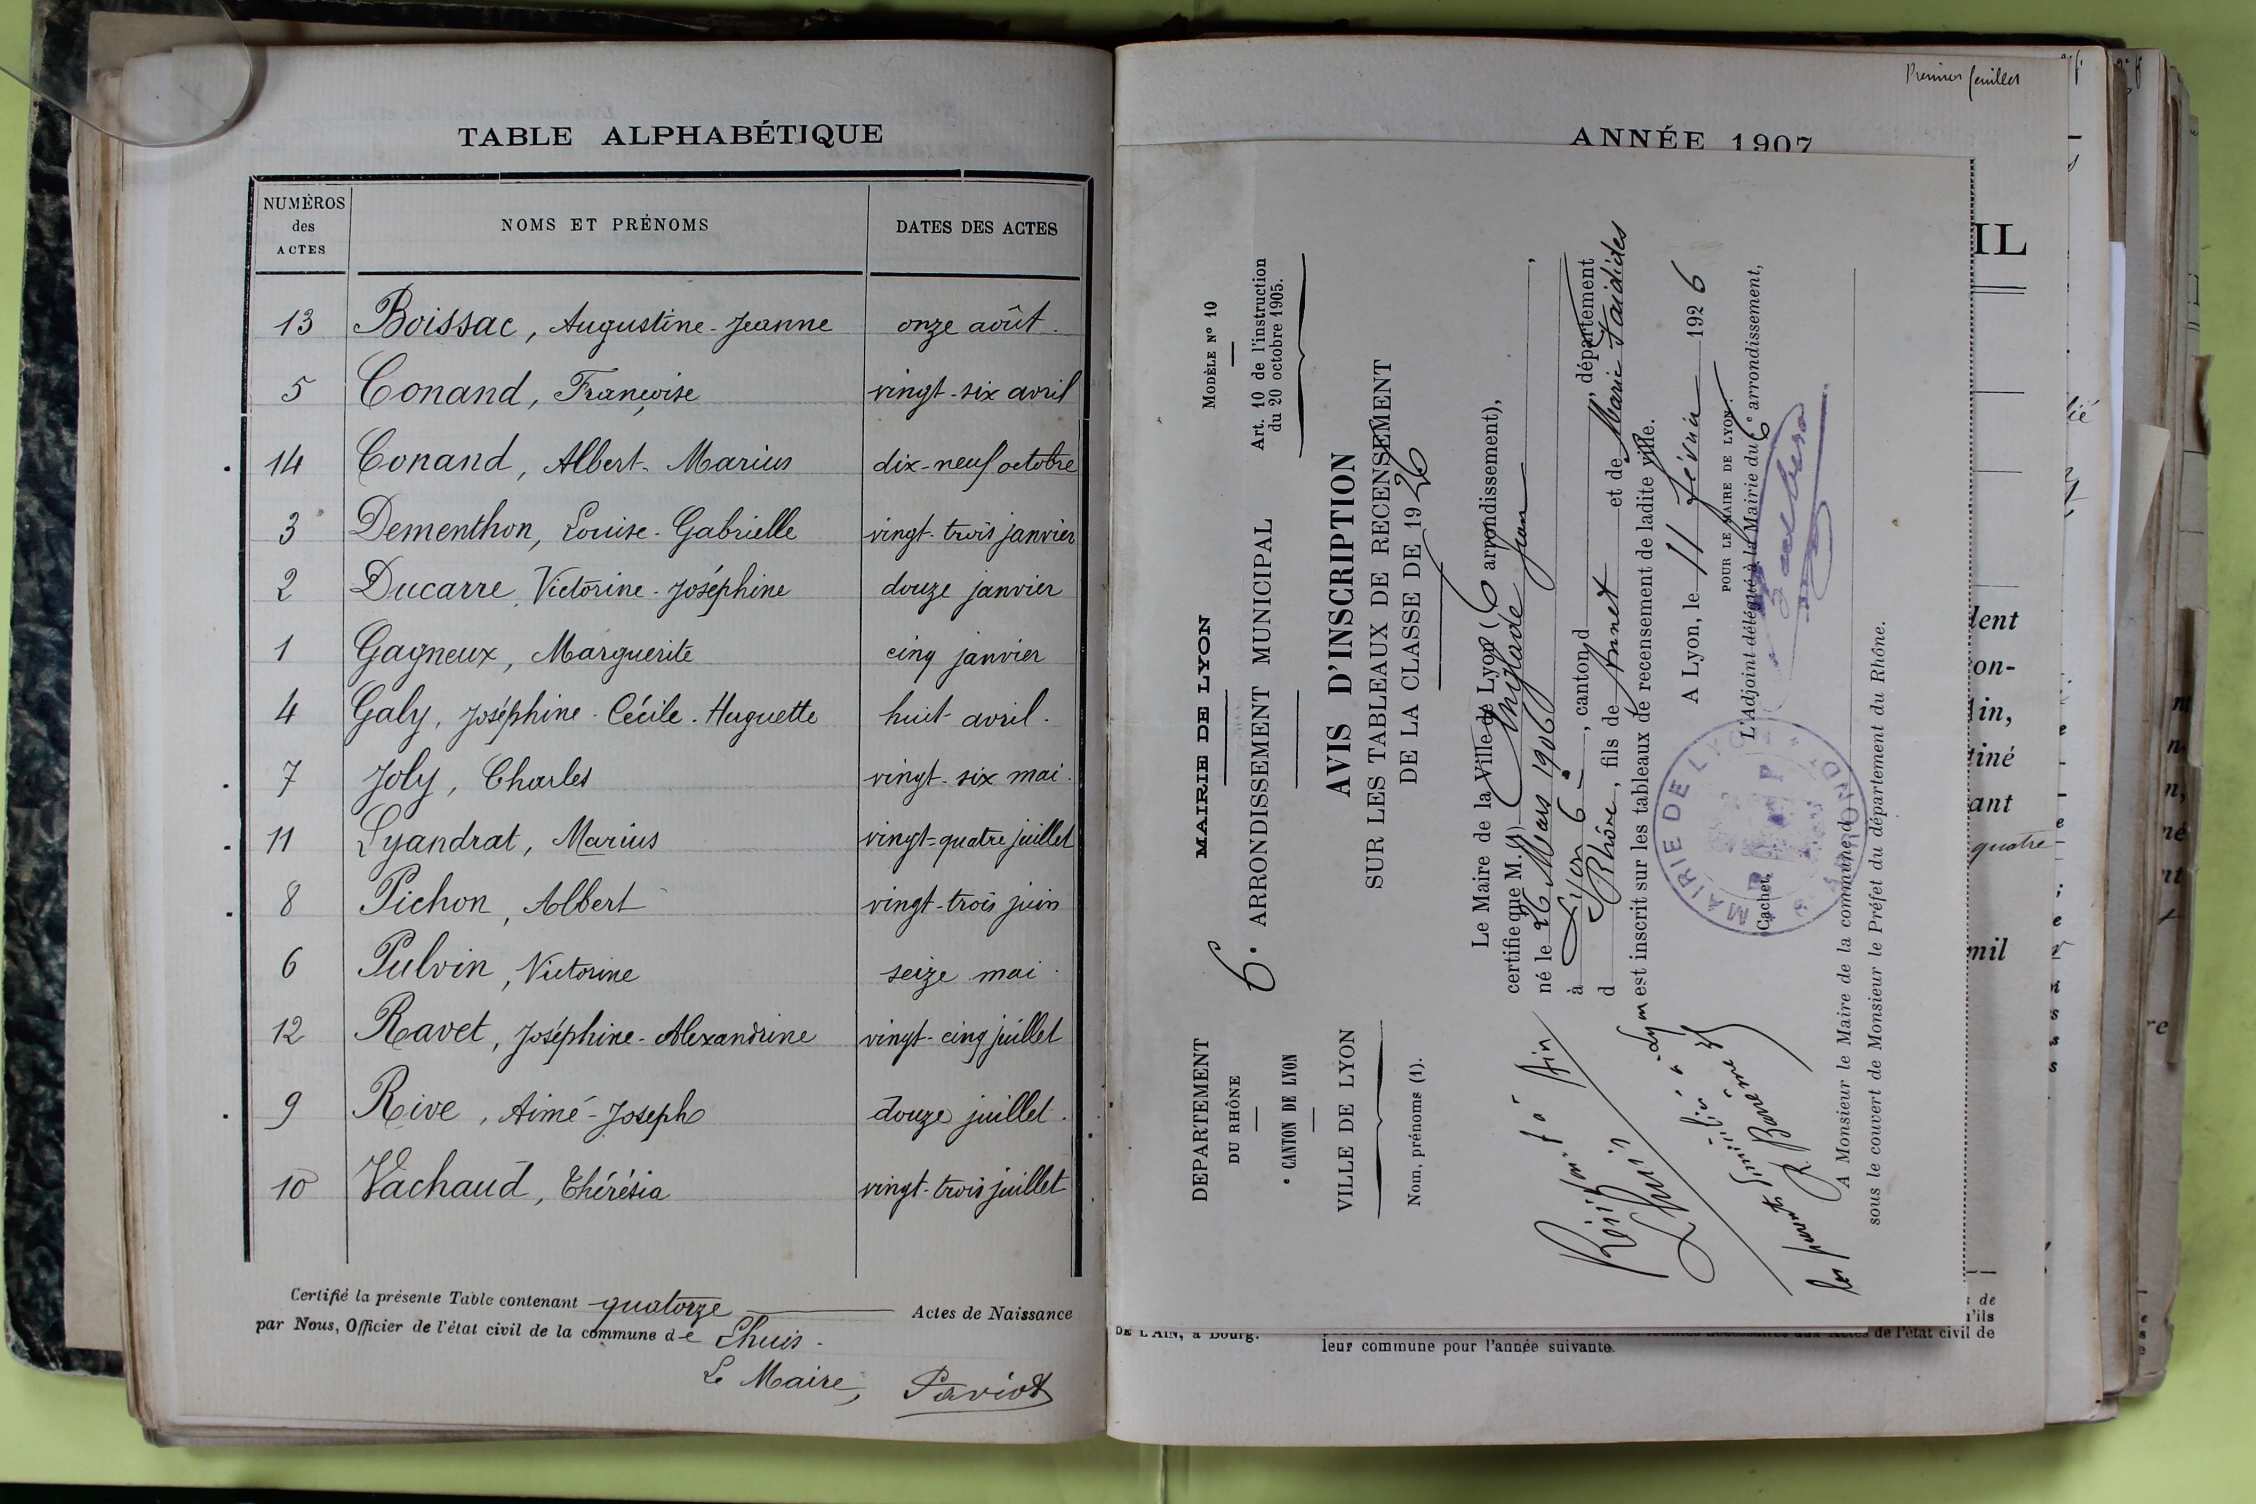 TABLE ALPHABÉTIQUE
NUMÉROS des ACTES NOMS ET PRÉNOMS DATES DES ACTES
13 Boissac, Augustine-Jeanne onze août.
5 Conand, Françoise vingt-six avril
14 Conand, Albert-Marius dix-neuf octobre
3 Dementhon, Louise-Gabrielle vingt-trois janvier
2 Ducarre, Victorine-Joséphine douze janvier
1 Gagneux, Marguerite cinq janvier
4 Galy, Joséphine-Cécile-Huguette huit avril.
7 Joly, Charles vingt-six mai.
11 Lyandrat, Marius vingt-quatre juillet
8 Pichon, Albert vingt-trois juin
6 Pulvin, Victorine seize mai.
12 Ravet, Joséphine-Alexandrine vingt-cinq juillet
9 Rive, Aimé-Joseph douze juillet.
10 Vachaud, Thérésia vingt-trois juillet
Certifié la présente Table contenant quatorze Actes de Naissance
par Nous, Officier de l'état civil de la commune de Lhuis.
Le Maire,
Paviot
Premier feuillet
ANNÉE 1907
IL
DEPARTEMENT
DU RHÔNE
CANTON DE LYON
VILLE DE LYON
Nom, prénoms (1).
MAIRIE DE LYON
MODÈLE Nº 10
6e ARRONDISSEMENT MUNICIPAL
Art. 10 de l'instruction
du 20 octobre 1905.
AVIS D'INSCRIPTION
SUR LES TABLEAUX DE RECENSEMENT
DE LA CLASSE DE 1926
Le Maire de la Ville de Lyon (6 arrondissement),
certifie que M. Jean
né le 26 Mars 1906
à Lyon 6, canton d , département
d Rhône, fils de et de Marie
est inscrit sur les tableaux de recensement de ladite ville.
A Lyon, le 11 février 1926
POUR LE MAIRE DE LYON:
L'Adjoint délégué à la Mairie du 6e arrondissement,
Cachet,
MAIRIE DE LYON
Lhuis
Ain
à Lyon
A Monsieur le Maire de la commune d
sous le couvert de Monsieur le Préfet du département du Rhône.
lent
on-
in,
tiné
ant
quatre
mil
DE L'AIN, à Bourg.
de l'état civil de
leur commune pour l'année suivante.